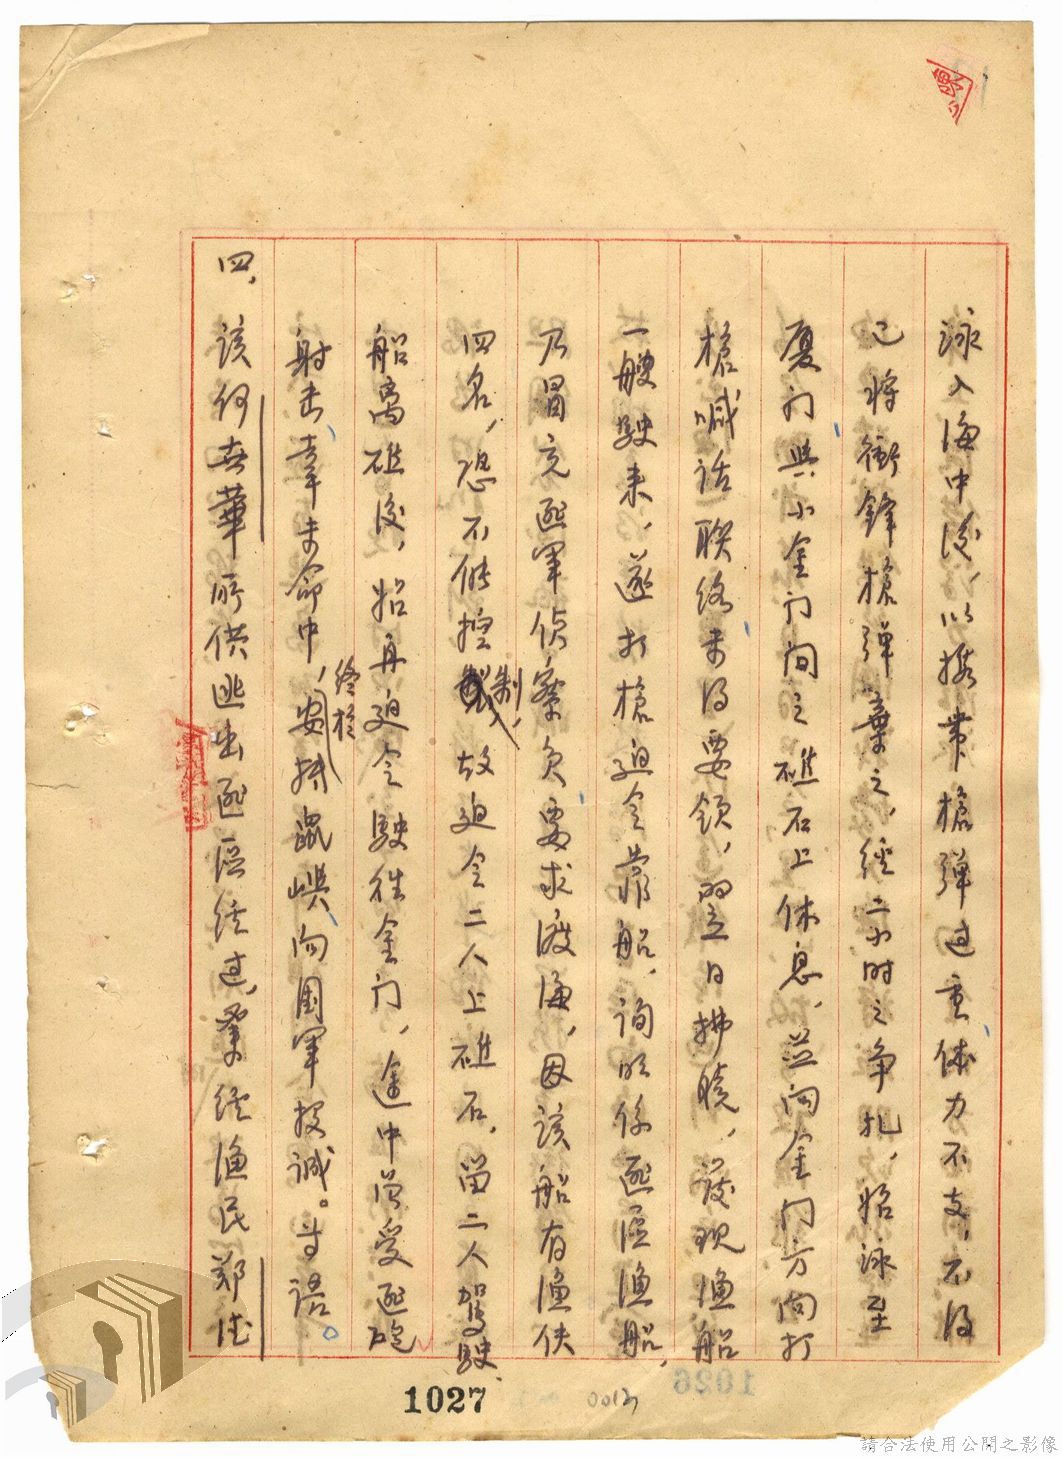 泳入海中後，以携帶槍彈过重体力不支，不得
已将衝鋒槍弹棄之，经二小时之争扎，始泳至
厦门與小金门间之礁石上休息，並向金门方向打
槍喊话联络未得要领，翌日拂晓，發現漁船
一艘驶来，遂打槍迫令靠船，询明係匪區漁船，
乃冒充匪軍侦察員要求渡海，因该船有漁伕
四名，恐不能控制，故迫令二人上礁石，留二人驾驶，
船离礁後，始再迫令驶往金门，途中曾受匪砲
射击幸未命中，終於安抵鼠嶼向國軍投诚。等语。
四，该何世華所供逃出匪區经过，業经漁民郑法
1027
1026
請合法使用公開之影像